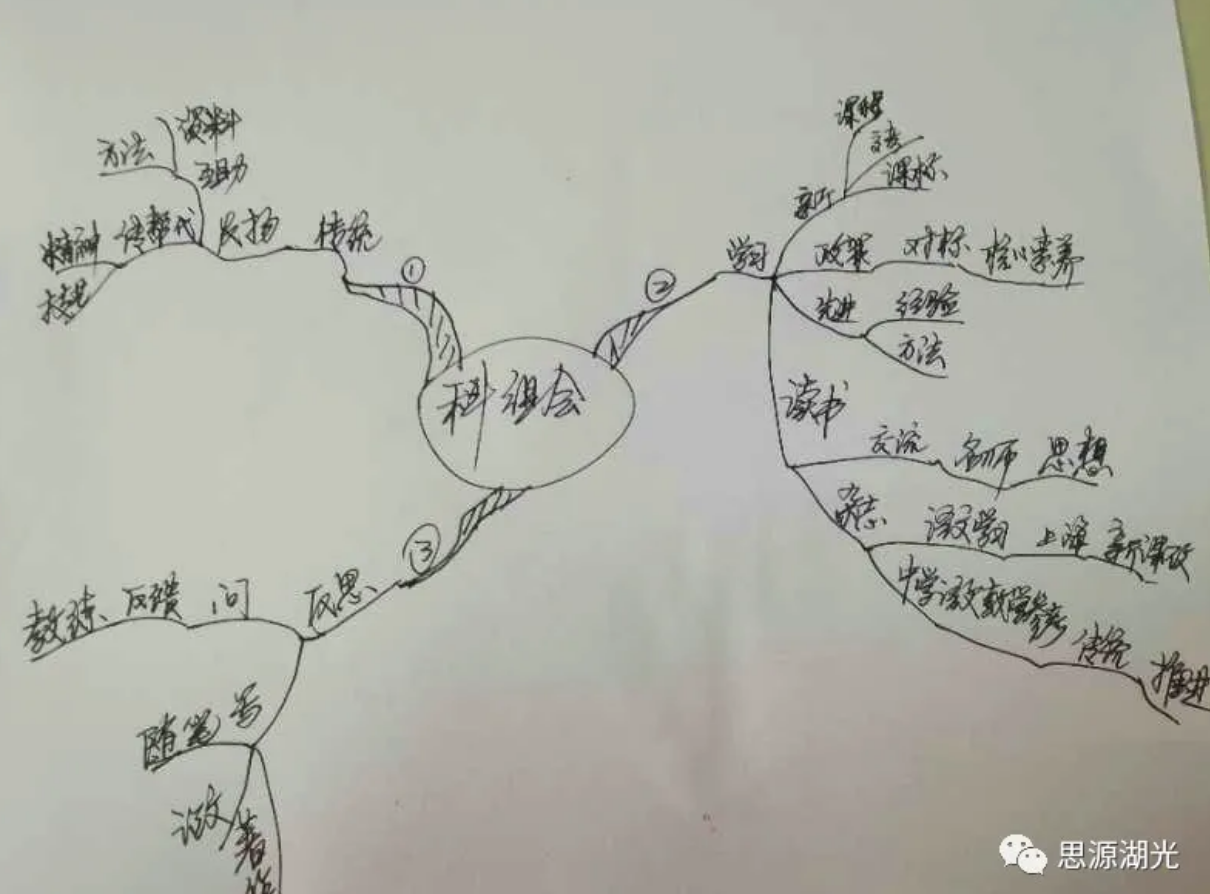 科组会
①
传统
发扬
传帮代
方法
资料
互助
精神
技巧
②
学习
新
课程
课标
政策
对标
核心素养
先进
经验
方法
读书
交流
名师
思想
杂志
语文学习
上海
新课改
中学语文教学参考
传统
推进
③
反思
问
反馈
教练
写
随笔
论文
著作
思源湖光